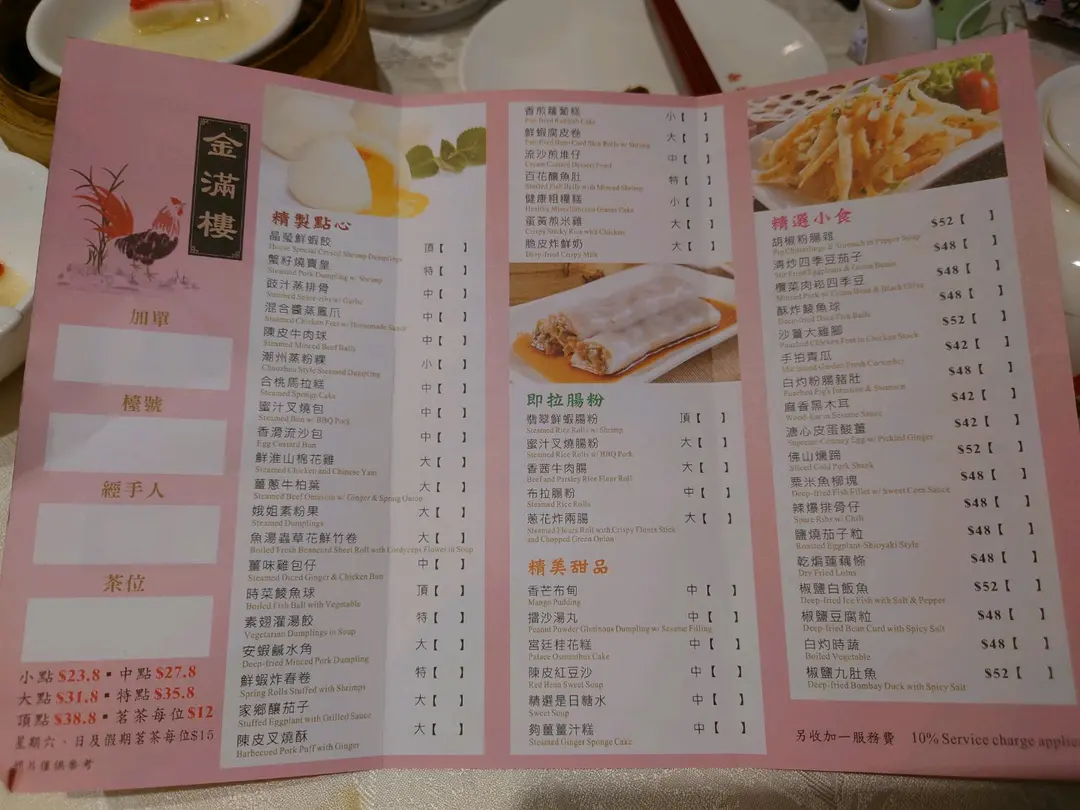 金滿樓
加單
檯號
經手人
茶位
小點 $23.8 ▪ 中點 $27.8
大點 $31.8 ▪ 特點 $35.8
頂點 $38.8 ▪ 茗茶每位 $12
星期六、日及假期茗茶每位$15
照片僅供參考
精製點心
晶瑩鮮蝦餃 頂【 】
House Special Crystal Shrimp Dumplings
蟹籽燒賣皇 特【 】
Steamed Pork Dumpling w/ Shrimp
豉汁蒸排骨 中【 】
Steamed Spare-ribs w/ Garlic
混合醬蒸鳳爪 中【 】
Steamed Chicken Feet w/ Homemade Sauce
陳皮牛肉球 中【 】
Steamed Minced Beef Balls
潮州蒸粉粿 小【 】
Chaozhou Style Steamed Dumpling
合桃馬拉糕 中【 】
Steamed Sponge Cake
蜜汁叉燒包 中【 】
Steamed Bun w/ BBQ Pork
香滑流沙包 中【 】
Egg Custard Bun
鮮淮山棉花雞 大【 】
Steamed Chicken and Chinese Yam
薑蔥牛柏葉 大【 】
Steamed Beef Omasum w/ Ginger & Spring Onion
娥姐素粉果 大【 】
Steamed Dumplings
魚湯蟲草花鮮竹卷 大【 】
Boiled Fresh Beancurd Sheet Roll with Cordyceps Flower in Soup
薑味雞包仔 中【 】
Steamed Diced Ginger & Chicken Bun
時菜鯪魚球 頂【 】
Boiled Fish Ball with Vegetable
素翅灌湯餃 特【 】
Vegetarian Dumplings in Soup
安蝦鹹水角 大【 】
Deep-fried Minced Pork Dumpling
鮮蝦炸春卷 特【 】
Spring Rolls Stuffed with Shrimps
家鄉釀茄子 大【 】
Stuffed Eggplant with Grilled Sauce
陳皮叉燒酥 大【 】
Barbecued Pork Puff with Ginger
香煎蘿蔔糕 小【 】
Pan-fried Radish Cake
鮮蝦腐皮卷 大【 】
Pan-fried Bean Curd Skin Rolls w/ Shrimp
流沙煎堆仔 中【 】
Cream Custard Dessert Fried
百花釀魚肚 特【 】
Stuffed Fish Belly with Minced Shrimp
健康粗糧糕 小【 】
蛋黃煎米雞 大【 】
Crispy Sticky Rice with Chicken
脆皮炸鮮奶 大【 】
Deep-fried Crispy Milk
即拉腸粉
翡翠鮮蝦腸粉 頂【 】
Steamed Rice Rolls w/ Shrimp
蜜汁叉燒腸粉 大【 】
Steamed Rice Rolls w/ BBQ Pork
香茜牛肉腸 大【 】
Beef and Parsley Rice Flour Roll
布拉腸粉 中【 】
Steamed Rice Rolls
蔥花炸兩腸 大【 】
Steamed Flours Roll with Crispy Flours Stick
and Chopped Green Onion
精美甜品
香芒布甸 中【 】
Mango Pudding
擂沙湯丸 中【 】
Peanut Powder Glutinous Dumpling w/ Sesame Filling
宮廷桂花糕 中【 】
Palace Osmanthus Cake
陳皮紅豆沙 中【 】
Red Bean Sweet Soup
精選是日糖水 中【 】
Sweet Soup
夠薑薑汁糕 中【 】
Steamed Ginger Sponge Cake
精選小食
胡椒粉腸雜 $52【 】
清炒四季豆茄子 $48【 】
Stir Fried Eggplants & Green Beans
欖菜肉崧四季豆 $48【 】
Minced Pork w/ Green Bean & Black Olive
酥炸鯪魚球 $48【 】
Deep-fried Dace Fish Balls
沙薑大雞腳 $52【 】
Poached Chicken Feet in Chicken Stock
手拍青瓜 $42【 】
Marinated Garden Fresh Cucumber
白灼粉腸豬肚 $48【 】
Poached Pig's Intestine & Stomach
麻香黑木耳 $42【 】
Wood-Ear in Sesame Sauce
溏心皮蛋酸薑 $42【 】
Supreme Century Egg w/ Pickled Ginger
佛山燻蹄 $52【 】
Sliced Cold Pork Shank
粟米魚柳塊 $48【 】
Deep-fried Fish Fillet w/ Sweet Corn Sauce
辣爆排骨仔 $48【 】
Spare Ribs w/ Chili
鹽燒茄子粒 $48【 】
Roasted Eggplant-Shioyaki Style
乾煸蓮藕條 $48【 】
Dry Fried Lotus
椒鹽白飯魚 $52【 】
Deep-fried Ice Fish with Salt & Pepper
椒鹽豆腐粒 $48【 】
Deep-fried Bean Curd with Spicy Salt
白灼時蔬 $48【 】
Boiled Vegetable
椒鹽九肚魚 $52【 】
Deep-fried Bombay Duck with Spicy Salt
另收加一服務費 10% Service charge applies